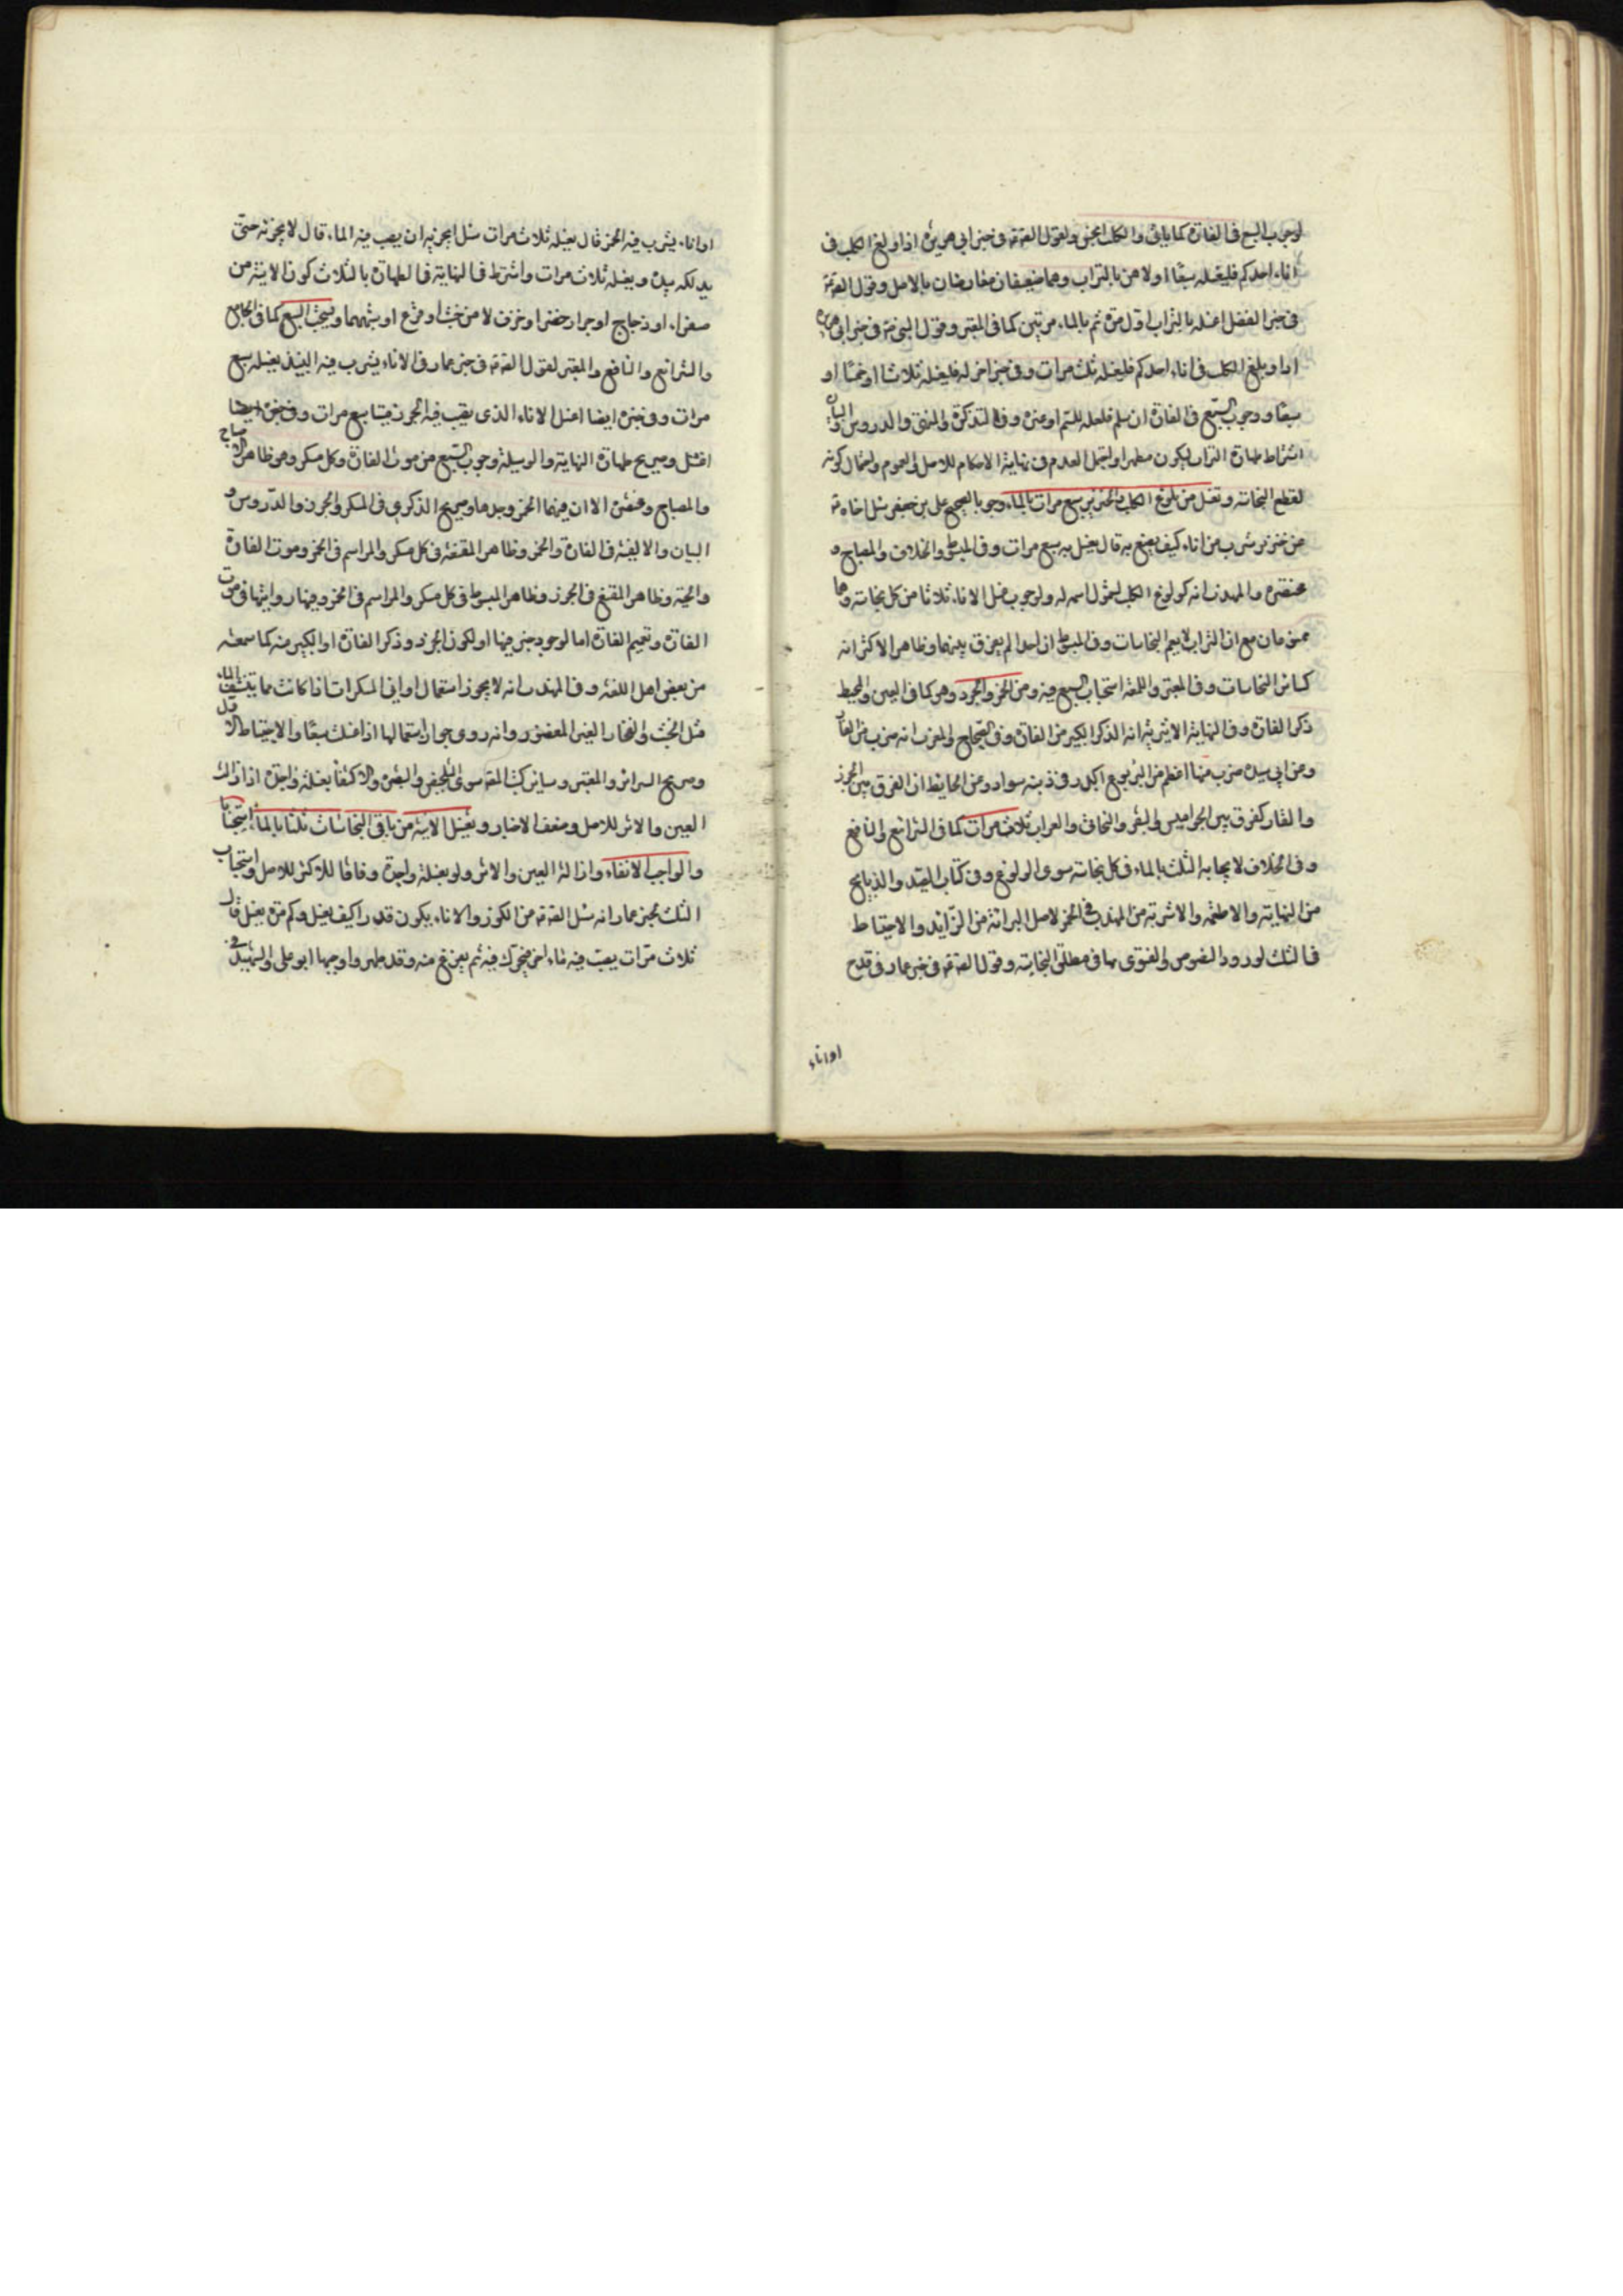 لوجوب السبع فى الفارة كما ياتى والكلب انجس ولقول الصّ ع فى خبر ابى هريرة اذا ولغ الكلب فى
اناء احدكم فليغسله سبعًا اولاهن بالتراب وهما ضعيفان معارضان بالاصل وقول الصّ ع
فى خبر الفضل اغسله بالتراب اول مرة ثم بالماء مرتين كما فى المعتبر وقول النبى ص فى خبر ابى هريرة
اذا ولغ الكلب فى اناء احدكم فليغسله ثلث مرات وفى خبر اخر له فليغسله ثلاثا او خمسًا او
سبعًا ووجوب السبع فى الفارة ان سلم فلعله للسم او غيره وفى التذكرة والمنتهى والدروس والبيان
اشتراط طهارة التراب ليكون مطهرا ويحتمل العدم فى نهاية الاحكام للاصل والعموم واحتمال كونه
لقطع النجاسة وتغسل من ولوغ الكلب والخنزير سبع مرات بالماء وجوبا لصحيح على بن جعفر سئل اخاه ع
عن خنزير شرب من اناء كيف يصنع به قال يغسل سبع مرات وفى المبسوط والخلاف والمصباح و
مختصره والمهذب انه كولوغ الكلب لشمول اسمه له ولوجوب غسل الاناء ثلاثا من كل نجاسة وهما
ممنوعان مع ان التراب لا يعم النجاسات وفى المبسوط ان احدا لم يفرق بينهما وظاهر الاكثر انه
كسائر النجاسات وفى المعتبر واللمعة استحباب السبع فيه ومن الخمر والجرذ وهو كما فى العين والمحيط
ذكر الفارة وفى النهاية الاثيرية انه الذكر الكبير من الفارة وفى الصحاح والمغرب انه ضرب من الفار
وعن ابن سيده ضرب منها اعظم من اليربوع اكدر فى ذنبه سواد وعن الجاحظ ان الفرق بين الجرذ
والفار كفرق بين الجواميس والبقر والبخاتى والعراب ثلاث مرات كما فى الشرائع والنافع
وفى الخلاف لايجابه الثلث بالماء فى كل نجاسة سوى الولوغ وفى كتاب الصيد والذبايح
من النهاية والاطعمة والاشربة من المهذب فى الخمر لاصل البرائة من الزايد والاحتياط
فى الثلث لورود النصوص والفتوى بها فى مطلق النجاسة وقول الصّ ع فى خبر عمار فى قدح
اواناء
او اناء يشرب فيه الخمر قال يغسله ثلاث مرات سئل ايجزيه ان يصب فيه الماء قال لا يجزيه حتى
يدلكه بيده ويغسله ثلاث مرات واشترط فى النهاية فى الطهارة بالثلاث كون الانية من
صفراء او زجاج او جرار خضر او خزف لا من خشب او قرع او شبههما ويستحب السبع كما فى الجامع
والشرائع والنافع والمعتبر لقول الصّ ع فى خبر عمار فى الاناء يشرب فيه النبيذ يغسله سبع
مرات وفى خبره ايضا اغسل الاناء الذى تصيب فيه الجرذ ميتا سبع مرات وفى خبره ايضا
وصريح طهارة النهاية والوسيلة وجوب السبع من موت الفارة وكل مسكر وهو ظاهر الاصباح
والمصباح ومختصره الا ان فيهما الخمر وحدها وصريح الذكرى فى المسكر والجرذ والدروس و
البيان والالفية فى الفارة والخمر وظاهر المقنعة فى كل مسكر والمراسم فى الخمر وموت الفارة
والحية وظاهر المقنع فى الجرذ وظاهر المبسوط فى كل مسكر والمراسم فى الخمر وفيها روايتها فى موت
الفارة وتعميم الفارة اما لوجود خبر فيها او لكون الجرذ وذكر الفارة او الكبير منه كما سمعته
من بعض اهل اللغة وفى المهذب انه لا يجوز استعمال اوانى المسكرات اذا كانت مما ينشف الماء
مثل الخشب والفخار الغير المغضور وانه روى جواز استعمالها اذا غسلت سبعًا والاحتياط الاول
وصريح السرائر والمعتبر وسائر كتب المص سوى التلخيص والتبصرة الاكتفا بغسلة واحدة اذا زالت
العين والاثر للاصل وضعف الاخبار ويغسل الانية من باقى النجاسات ثلثا بالماء استحبابا
والواجب الانقاء وازالة العين والاثر ولو بغسلة واحدة وفاقا للاكثر للاصل واستحباب
الثلث لخبر عمار انه سئل الصّ ع عن الكوز والاناء يكون قذرا كيف يغسل وكم مرة يغسل قال
ثلاث مرات يصب فيه ماء اخر فيحرك فيه ثم يفرغ منه وقد طهر واوجبها ابو على والشيخ فى